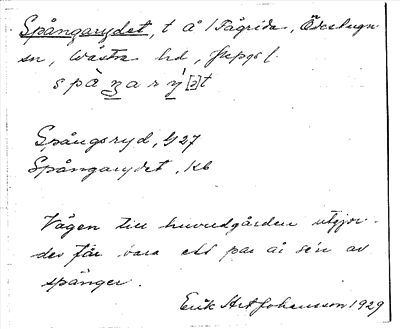 Spångarydet, t å 1 Fågrida, Ödestugu
sn, Västra hd, Jkpgs l.
spåŋarý[ə]t
Spångsryd, G 27
Spångarydet, Kb
Vägen till huvudgården utgjor-
des för bara ett par år sen av
spänger.
Erik Arf Johansson 1929